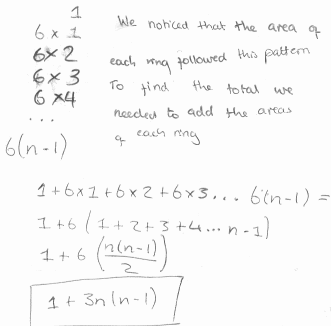 1
6 × 1
6 × 2
6 × 3
6 × 4
...
6(n-1)
We noticed that the area of
each ring followed this pattern
To find the total we
needed to add the areas
of each ring
1 + 6 × 1 + 6 × 2 + 6 × 3 ... 6(n-1) =
1 + 6 (1 + 2 + 3 + 4 ... n - 1)
1 + 6 (n(n-1)/2)
1 + 3n(n-1)